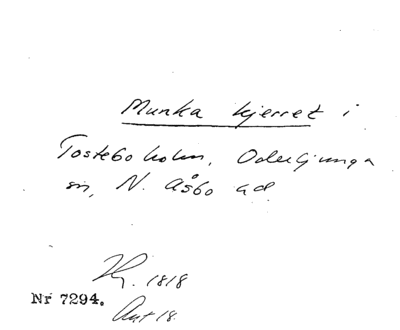 Munka kjerret i
Tosteboholm, Oderljunga
sn, N. Åsbo hd
1818
Nr 7294.